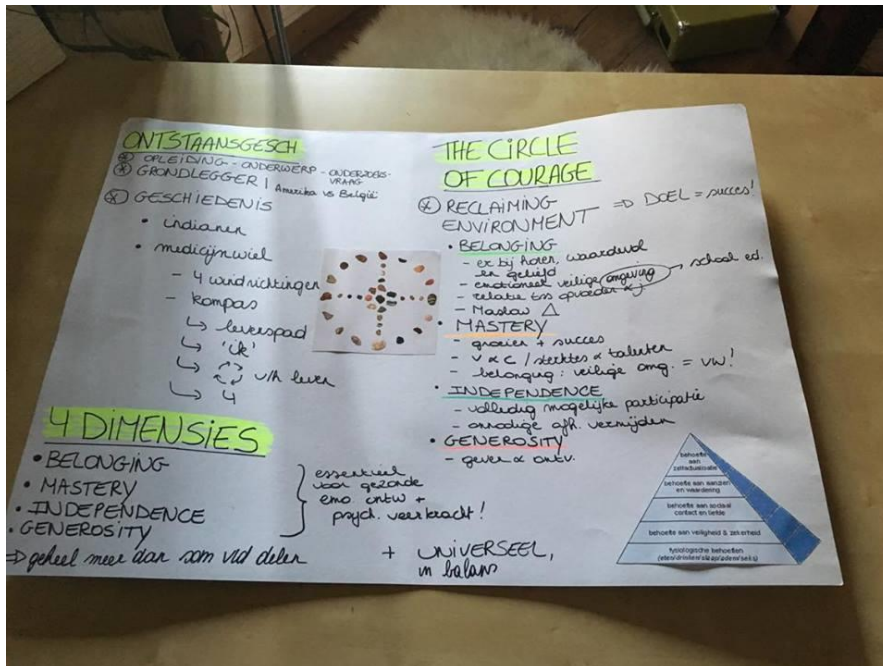 ONTSTAANSGESCH
OPLEIDING - ONDERWERP - ONDERZOEKS-
VRAAG
GRONDLEGGER | Amerika vs België
GESCHIEDENIS
• indianen
• medicijnwiel
- 4 windrichtingen
- kompas
↳ levenspad
↳ 'ik'
↳ v/h leven
↳ 4
4 DIMENSIES
• BELONGING
• MASTERY
• INDEPENDENCE
• GENEROSITY
essentieel
voor gezonde
emo. ontw +
psych. veerkracht!
⇒ geheel meer dan som vld delen
+ UNIVERSEEL,
in balans
THE CIRCLE
OF COURAGE
RECLAIMING
ENVIRONMENT ⇒ DOEL = succes!
• BELONGING
- er bij horen, waardevol
en geliefd
- emotioneel veilige omgeving → school ed.
- relatie tss opvoeder
- Maslow △
• MASTERY
- groeien + succes
- V & C / sterktes & talenten
- belonging: veilige omg. = VW!
• INDEPENDENCE
- volledig mogelijke participatie
- onnodige afh. vermijden
• GENEROSITY
- geven & ontv.
behoefte
aan
zelfactualisatie
behoefte aan aanzien
en waardering
behoefte aan sociaal
contact en liefde
behoefte aan veiligheid & zekerheid
fysiologische behoeften
(eten/drinken/slapen/ademen/seks)